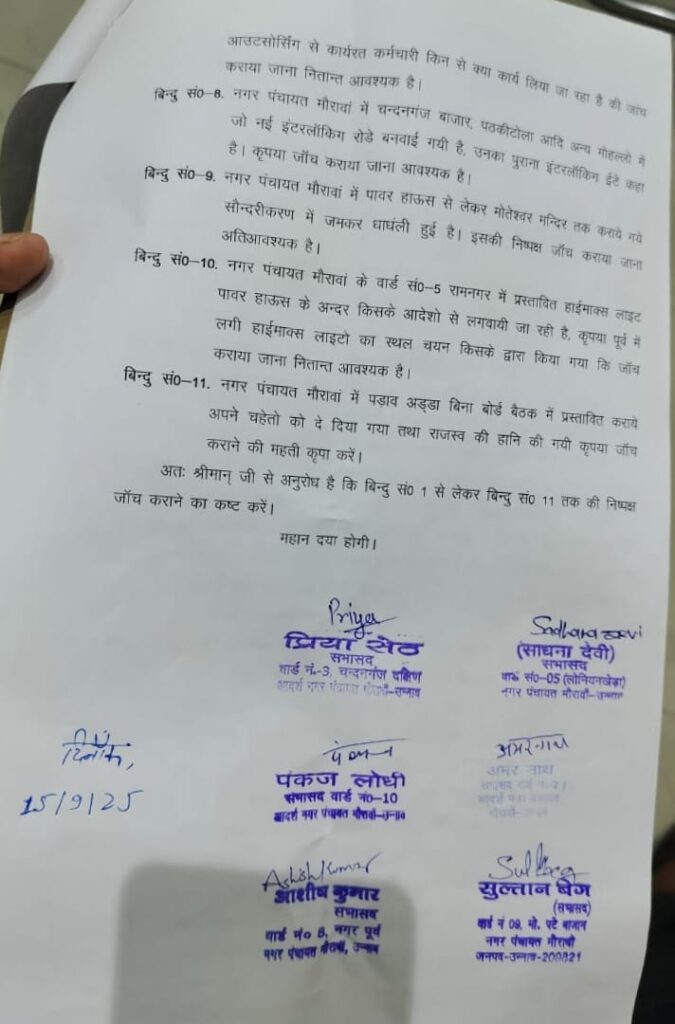 आउटसोर्सिंग से कार्यरत कर्मचारी किन से क्या कार्य लिया जा रहा है की जांच
कराया जाना नितान्त आवश्यक है।
बिन्दु सं0-8. नगर पंचायत मौरावां में चन्दनगंज बाजार, पठकीटोला आदि अन्य मोहल्लो में
जो नई इंटरलॉकिग रोडे बनवाई गयी है, उनका पुराना इंटरलॉकिग ईटे कहा
है। कृपया जॉच कराया जाना आवश्यक है।
बिन्दु सं0-9. नगर पंचायत मौरावां में पावर हाऊस से लेकर मोतेश्वर मन्दिर तक कराये गये
सौन्दरीकरण में जमकर धाधंली हुई है। इसकी निष्पक्ष जॉच कराया जाना
अतिआवश्यक है।
बिन्दु सं0-10. नगर पंचायत मौरावां के वार्ड सं0-5 रामनगर में प्रस्तावित हाईमाक्स लाइट
पावर हाऊस के अन्दर किसके आदेशो से लगवायी जा रही है, कृपया पूर्व में
लगी हाईमाक्स लाइटो का स्थल चयन किसके द्वारा किया गया कि जॉच
कराया जाना नितान्त आवश्यक है।
बिन्दु सं0-11. नगर पंचायत मौरावां में पड़ाव अड्डा बिना बोर्ड बैठक में प्रस्तावित कराये
अपने चहेतो को दे दिया गया तथा राजस्व की हानि की गयी कृपया जॉच
कराने की महती कृपा करें।
अतः श्रीमान् जी से अनुरोध है कि बिन्दु सं0 1 से लेकर बिन्दु सं0 11 तक की निष्पक्ष
जॉच कराने का कष्ट करें।
महान दया होगी।
Priya
प्रिया सेठ
सभासद
वार्ड नं.-3, चन्दनगंज दक्षिण
आदर्श नगर पंचायत मौरावाँ-उन्नाव
(साधना देवी)
सभासद
वार्ड सं0-05 (लोनियनखेड़ा)
नगर पंचायत मौरावाँ-उन्नाव
दिनाँक,
15/9/25
पंकज
पंकज लोधी
सभासद वार्ड नं0-10
आदर्श नगर पंचायत मौरावाँ-उन्नाव
अमरनाथ
अमर नाथ
Ashish Kumar
आशीष कुमार
सभासद
वार्ड नं० 8, नगर पूर्व
नगर पंचायत मौरावाँ, उन्नाव
सुल्तान बेग
(सभासद)
वार्ड नं 09, मो.
नगर पंचायत मौरावाँ
जनपद-उन्नाव-209821